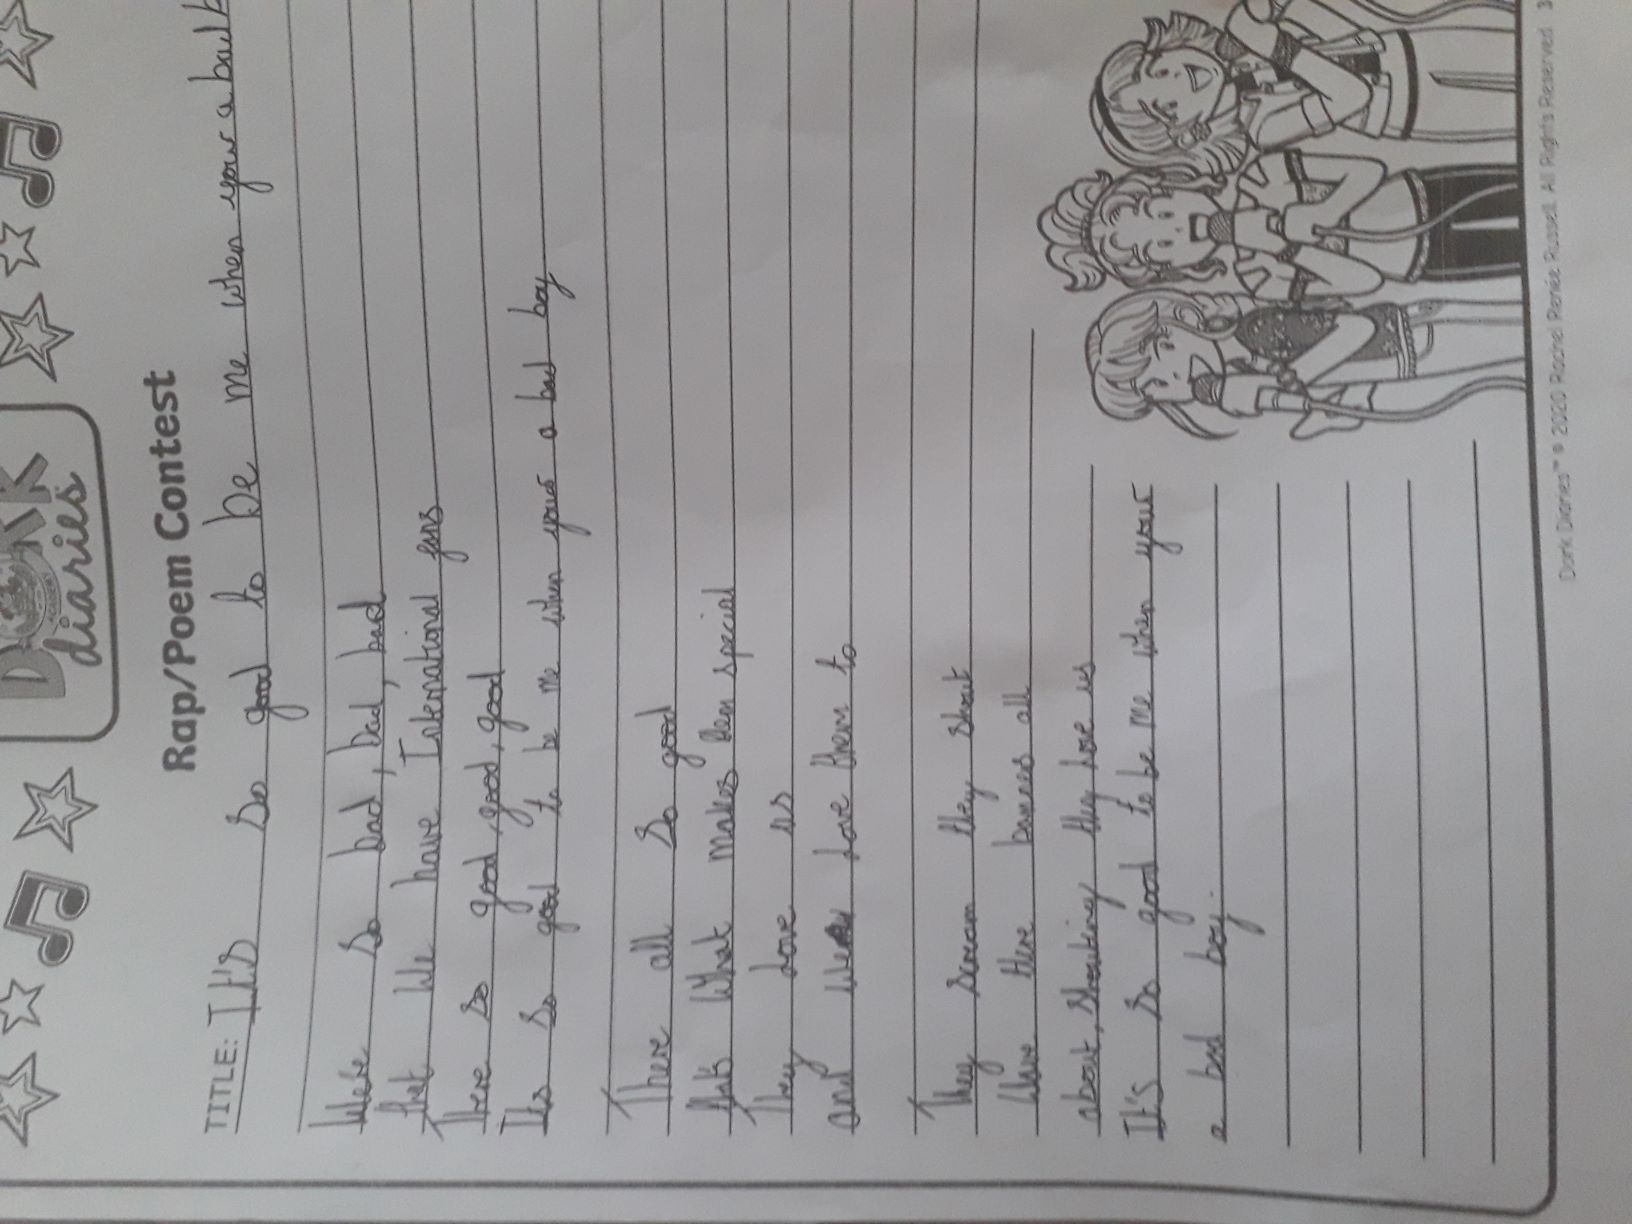 DORK
diaries
Rap/Poem Contest
TITLE: It's so good to be me when your a bad b
We're so bad, bad, bad
that we have International fans
There so good, good, good
Its so good to be me when your a bad boy
There all so good
that's what makes them special
They love us
and we love them to
They scream they shout
Wave there banners all
about, shouting they love us
It's so good to be me when your
a bad boy.
Dork Diaries™ © 2020 Rachel Renée Russell. All Rights Reserved. 3